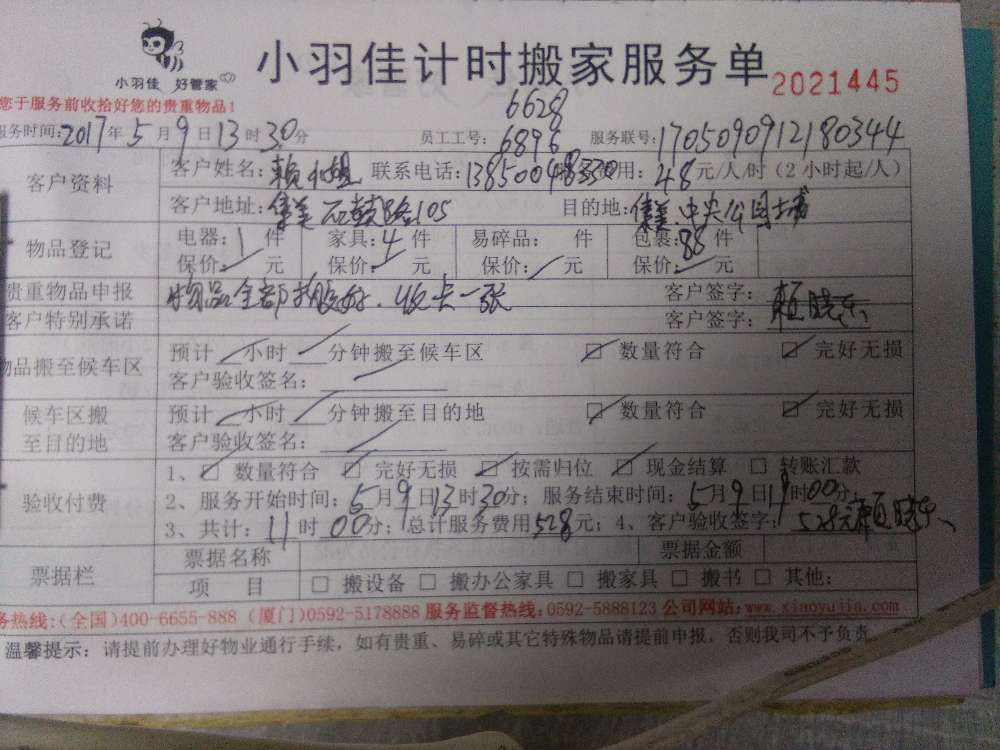 小羽佳 好管家
小羽佳计时搬家服务单 2021445
您于服务前收拾好您的贵重物品！
服务时间:2017年5月9日13时30分 员工工号: 6628 6896 服务联号:170509091218034​4
客户资料 客户姓名: 赖小姐 联系电话:13850048330 费用: 48元/人/时(2小时起/人)
客户地址: 集美石鼓路105 目的地: 集美中央公园城
物品登记 电器: 1 件 家具: 4 件 易碎品: 件 包裹: 88 件
保价: 元 保价: 元 保价: 元 保价: 元
贵重物品申报 物品全部 收卡一张 客户签字:
客户特别承诺 客户签字: 赖晓东
物品搬至候车区 预计 小时 分钟搬至候车区 □ 数量符合 □ 完好无损
客户验收签名:
候车区搬至目的地 预计 小时 分钟搬至目的地 □ 数量符合 □ 完好无损
客户验收签名:
验收付费 1、□ 数量符合 □ 完好无损 □ 按需归位 □ 现金结算 □ 转账汇款
2、服务开始时间: 5月9日13时30分; 服务结束时间: 5月9日19时00分
3、共计: 11时00分; 总计服务费用528元; 4、客户验收签字: 528元赖晓东
票据栏 票据名称 票据金额
项 目 □ 搬设备 □ 搬办公家具 □ 搬家具 □ 搬书 □ 其他:
务热线:(全国)400-6655-888 (厦门)0592-5178888 服务监督热线:0592-5888123 公司网站:www.xiaoyujia.com
温馨提示: 请提前办理好物业通行手续，如有贵重、易碎或其它特殊物品请提前申报，否则我司不予负责